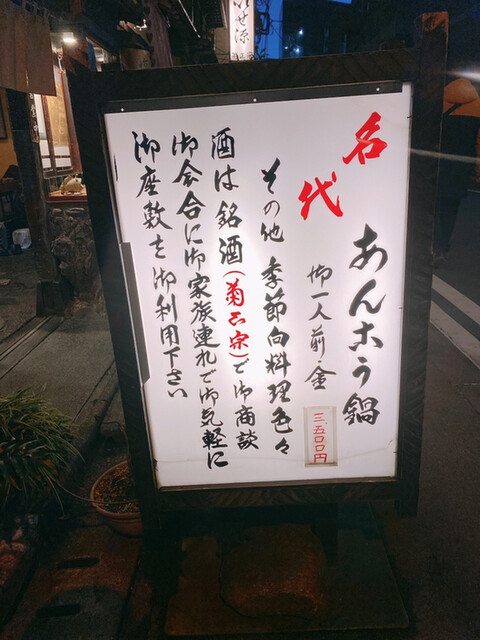 名代
あんこう鍋
御一人前金
三、五〇〇円
その他季節向料理色々
酒は銘酒(菊正宗)で御商談
御会合に御家族連れで御気軽に
御座敷を御利用下さい
いせ源